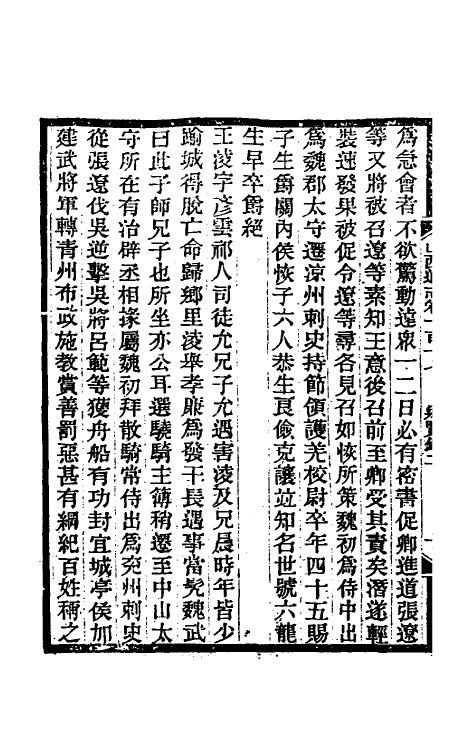 爲急會者不欲驚動遠衆一二日必有密書促卿進道張遼
等又將被召遼等素知王意後召前至卿受其責矣潛遂輕
裝速發果被促令遼等尋各見召如恢所策魏初爲侍中出
爲魏郡太守遷涼州刺史持節領護羌校尉卒年四十五賜
子生爵關內侯恢子六人恭生良儉克讓竝知名世號六龍
生早卒爵絕
王淩字彥雲祁人司徒允兄子允遇害淩及兄晨時年皆少
踰城得脫亡命歸鄉里淩舉孝廉爲發干長遇事當髡魏武
曰此子師兄子也所坐亦公耳選驍騎主簿稍遷至中山太
守所在有治辟丞相掾屬魏初拜散騎常侍出爲兗州刺史
從張遼伐吳逆擊吳將呂範等獲舟船有功封宜城亭侯加
建武將軍轉青州布政施教賞善罰惡甚有綱紀百姓稱之